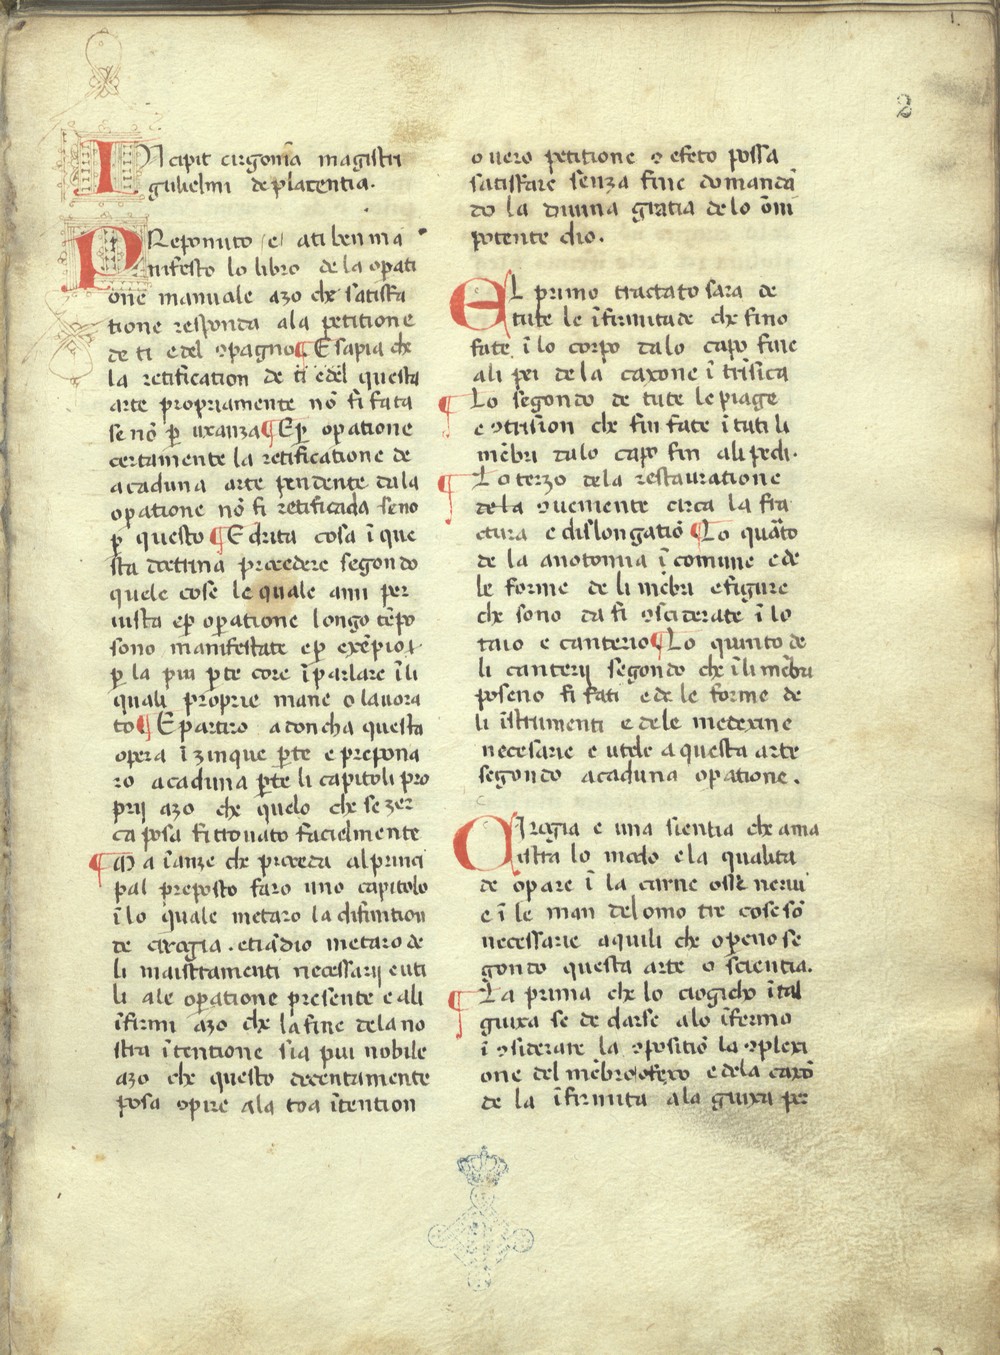 2
INcipit cirgonia magistri
gulielmi de placentia.
PReponuto e ati ben ma
nifesto lo libro de la opati
one manuale azo che satisfa
tione responda ala petitione
de ti e del ɔpagno ¶ E sapia che
la retification de ti e del questa
arte propriamente nō fi fata
se nō p̱ uxanza ¶ E p̱ opatione
certamente la retificatione de
acaduna arte pendente dala
op̱atione nō fi retificada seno
p̱ questo ¶ E drita cosa ī que
sta doctrina procedere segondo
quele cose le quale ami per
uista e p̱ op̱atione longo tēpo
sono manifestate e p̱ exēpio
p̱ la piu p̱te core ī parlare ī li
quali proprie mane o lauora
to ¶ E partiro adoncha questa
opera ī zinque p̱te e prepona
ro acaduna p̱te li capitoli pro
prij azo che quelo che se zer
ca posa fi trouato facielmente
¶ Ma īanze che proceda al princi
pal preposto faro uno capitolo
ī lo quale metaro la difinition
de cirogia. etiādio metaro de
li maistramenti necessarij e uti
li ale op̱atione presente e ali
īfirmi azo che la fine dela no
stra ītentione sia piu nobile
azo che questo decentamente
posa ɔpire ala toa ītention
o uero petitione ɔ efeto possa
satisfare senza fine domandā
do la diuina gratia de lo ōni
potente dio.
El primo tractato sara de
tute le īfirmitade che fino
fate ī lo corpo dalo capo fine
ali pei de la caxone ītrīsica
¶ Lo segondo de tute le piage
e ɔtrision che fin fate ī tuti li
mēbri dalo capo fin ali pedi.
¶ Lo terzo dela restauratione
dela ɔuemente circa la fra
ctura e dislongatiō ¶ Lo quāto
de la anotomia ī comune e de
le forme de li mēbri e figure
che sono da fi ɔsiderate ī lo
taio e canterio ¶ Lo quinto de
li canterij segondo che ī li mēbri
poseno fi fati e de le forme de
li īstrumenti e dele medexine
necesarie e utele a questa arte
segondo acaduna op̱atione.
CIrogia e una sientia che ama
istra lo modo e la qualita
de op̱are ī la carne osse nerui
e ī le man del omo tre cose sō
necessarie aquili che op̱eno se
gondo questa arte o scientia.
¶ La prima che lo ciogicho ī tal
guixa se de darse alo īfermo
ī ɔsiderare la ɔpositiō la ɔplexi
one del mēbro ofexo e dela caxō
de la īfirmita ala guixa per